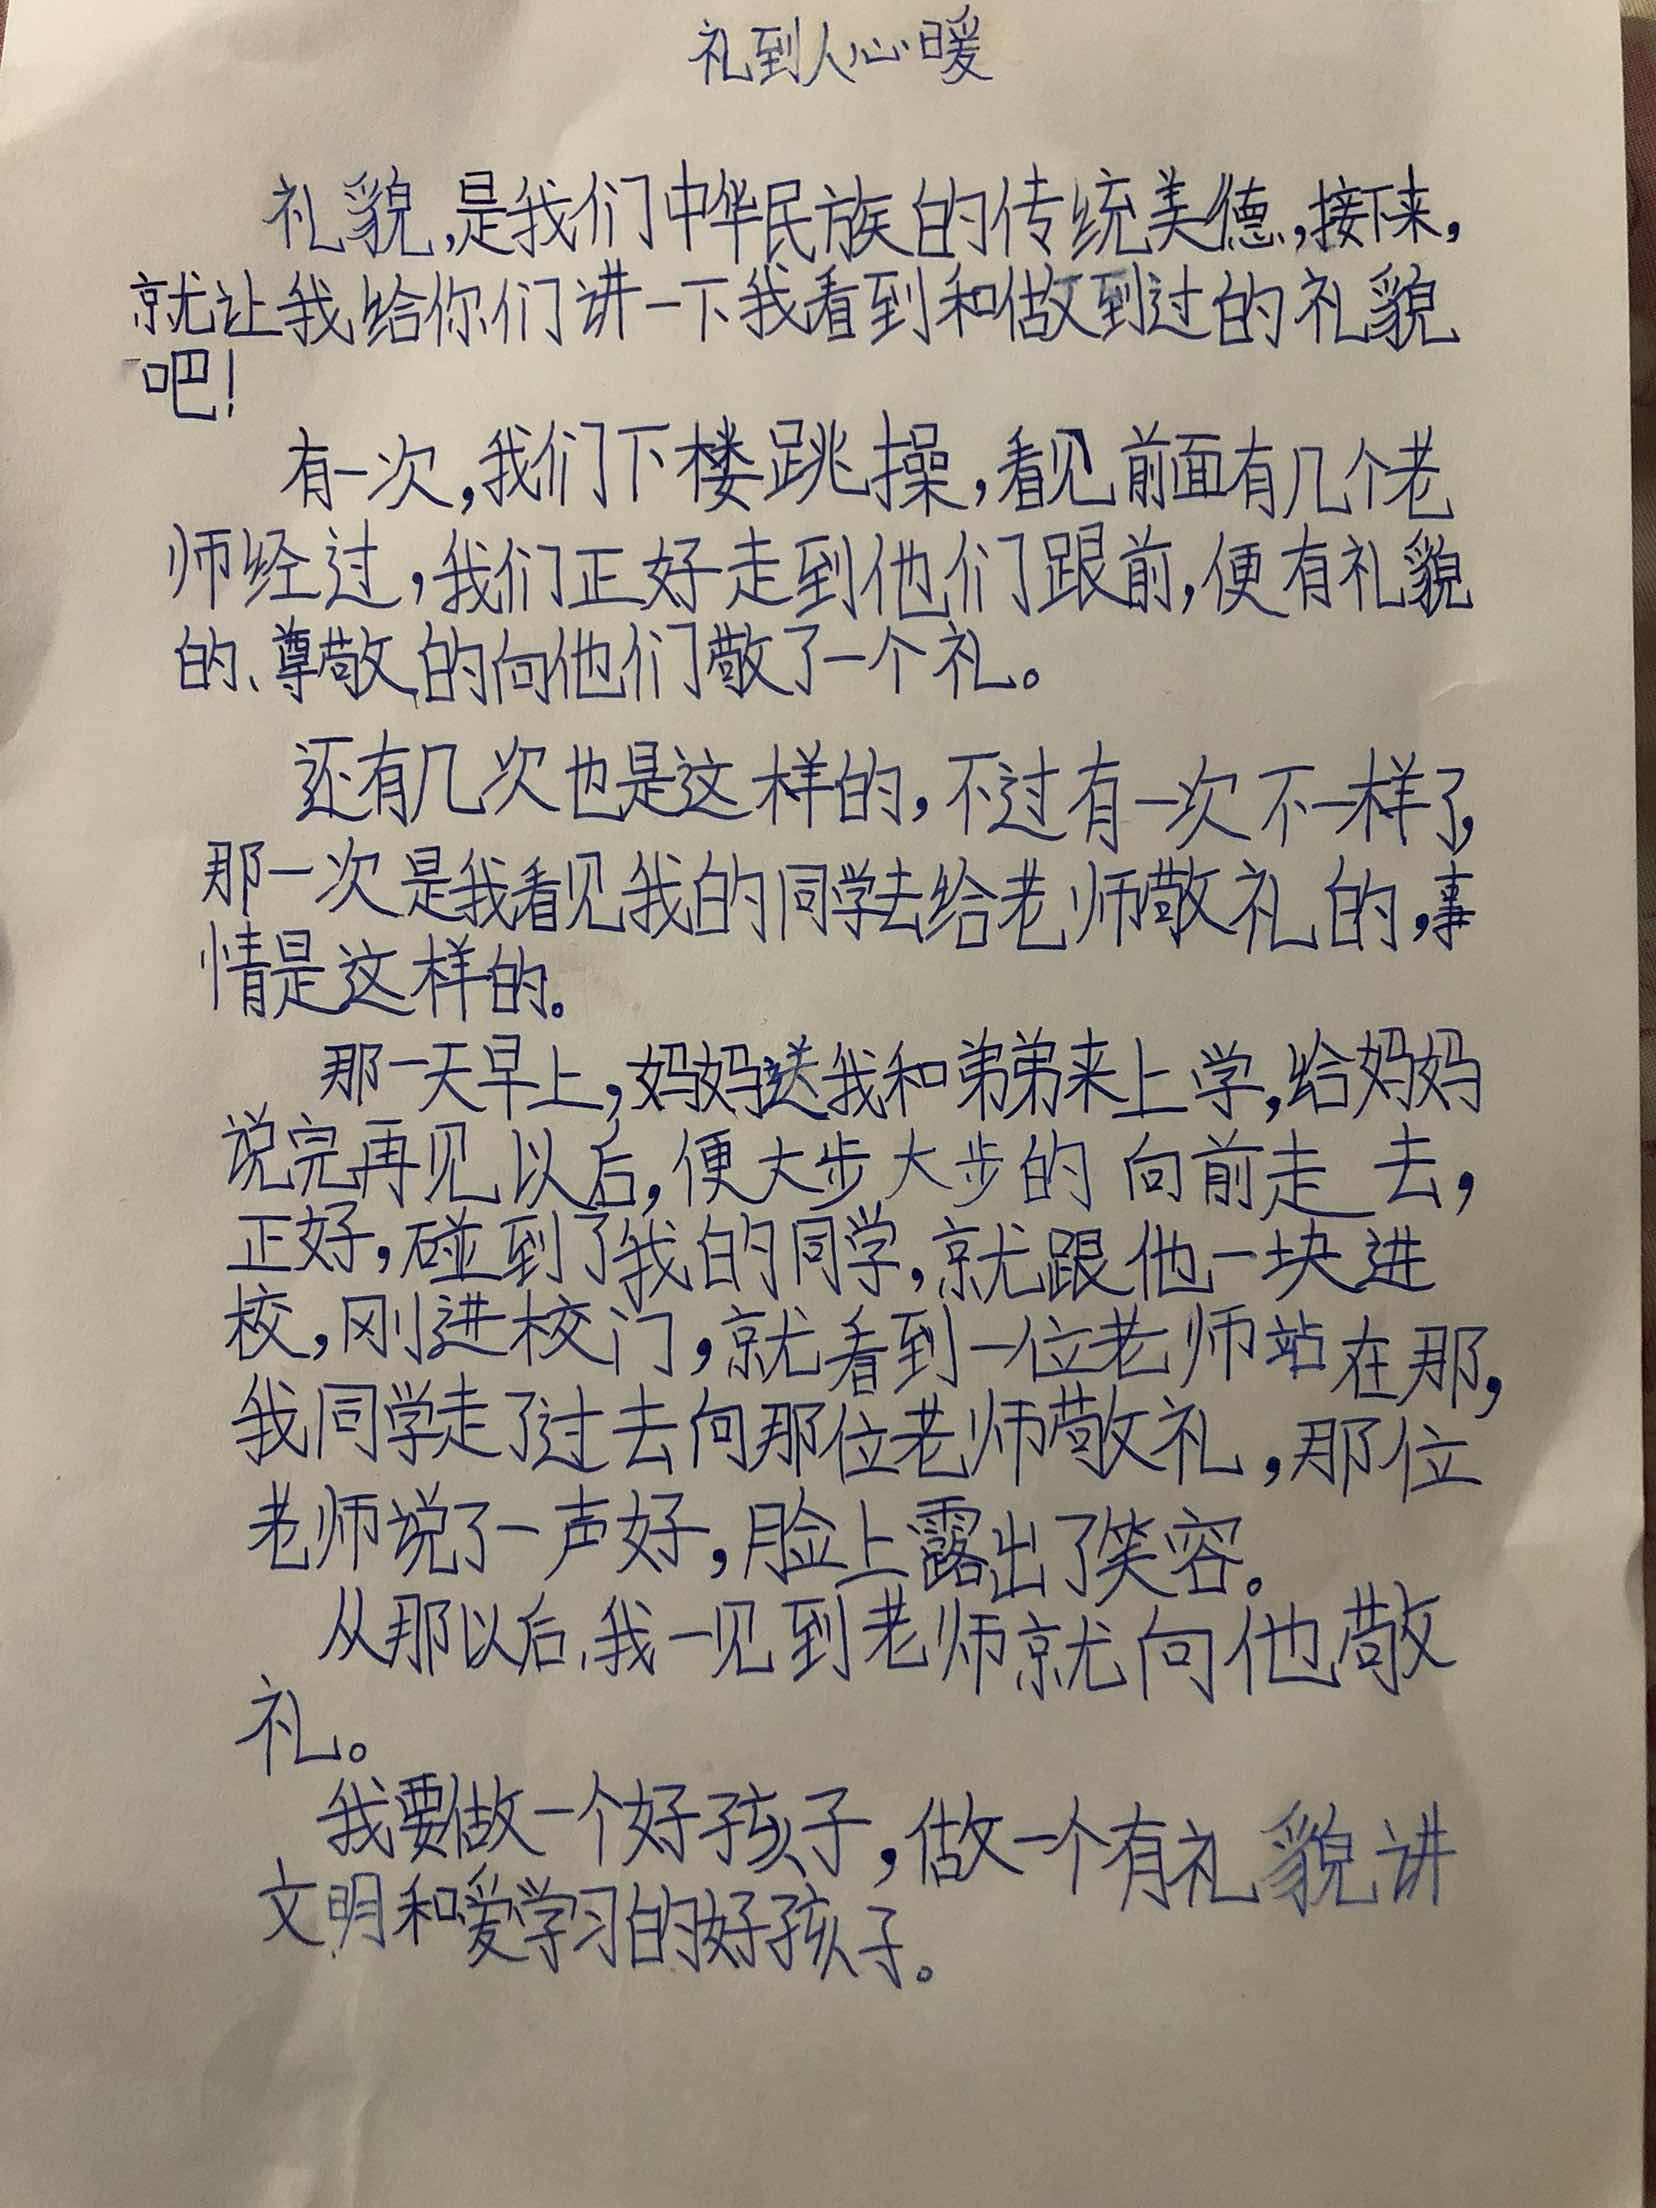 礼到人心暖
礼貌,是我们中华民族的传统美德,接下来,
就让我给你们讲一下我看到和做到过的礼貌
吧!
有一次,我们下楼跳操,看见前面有几个老
师经过,我们正好走到他们跟前,便有礼貌
的、尊敬的向他们敬了一个礼。
还有几次也是这样的,不过有一次不一样了,
那一次是我看见我的同学去给老师敬礼的,事
情是这样的。
那一天早上,妈妈送我和弟弟来上学,给妈妈
说完再见以后,便大步大步的向前走去,
正好,碰到了我的同学,就跟他一块进
校,刚进校门,就看到一位老师站在那,
我同学走了过去向那位老师敬礼,那位
老师说了一声好,脸上露出了笑容。
从那以后,我一见到老师就向他敬
礼。
我要做一个好孩子,做一个有礼貌讲
文明和爱学习的好孩子。